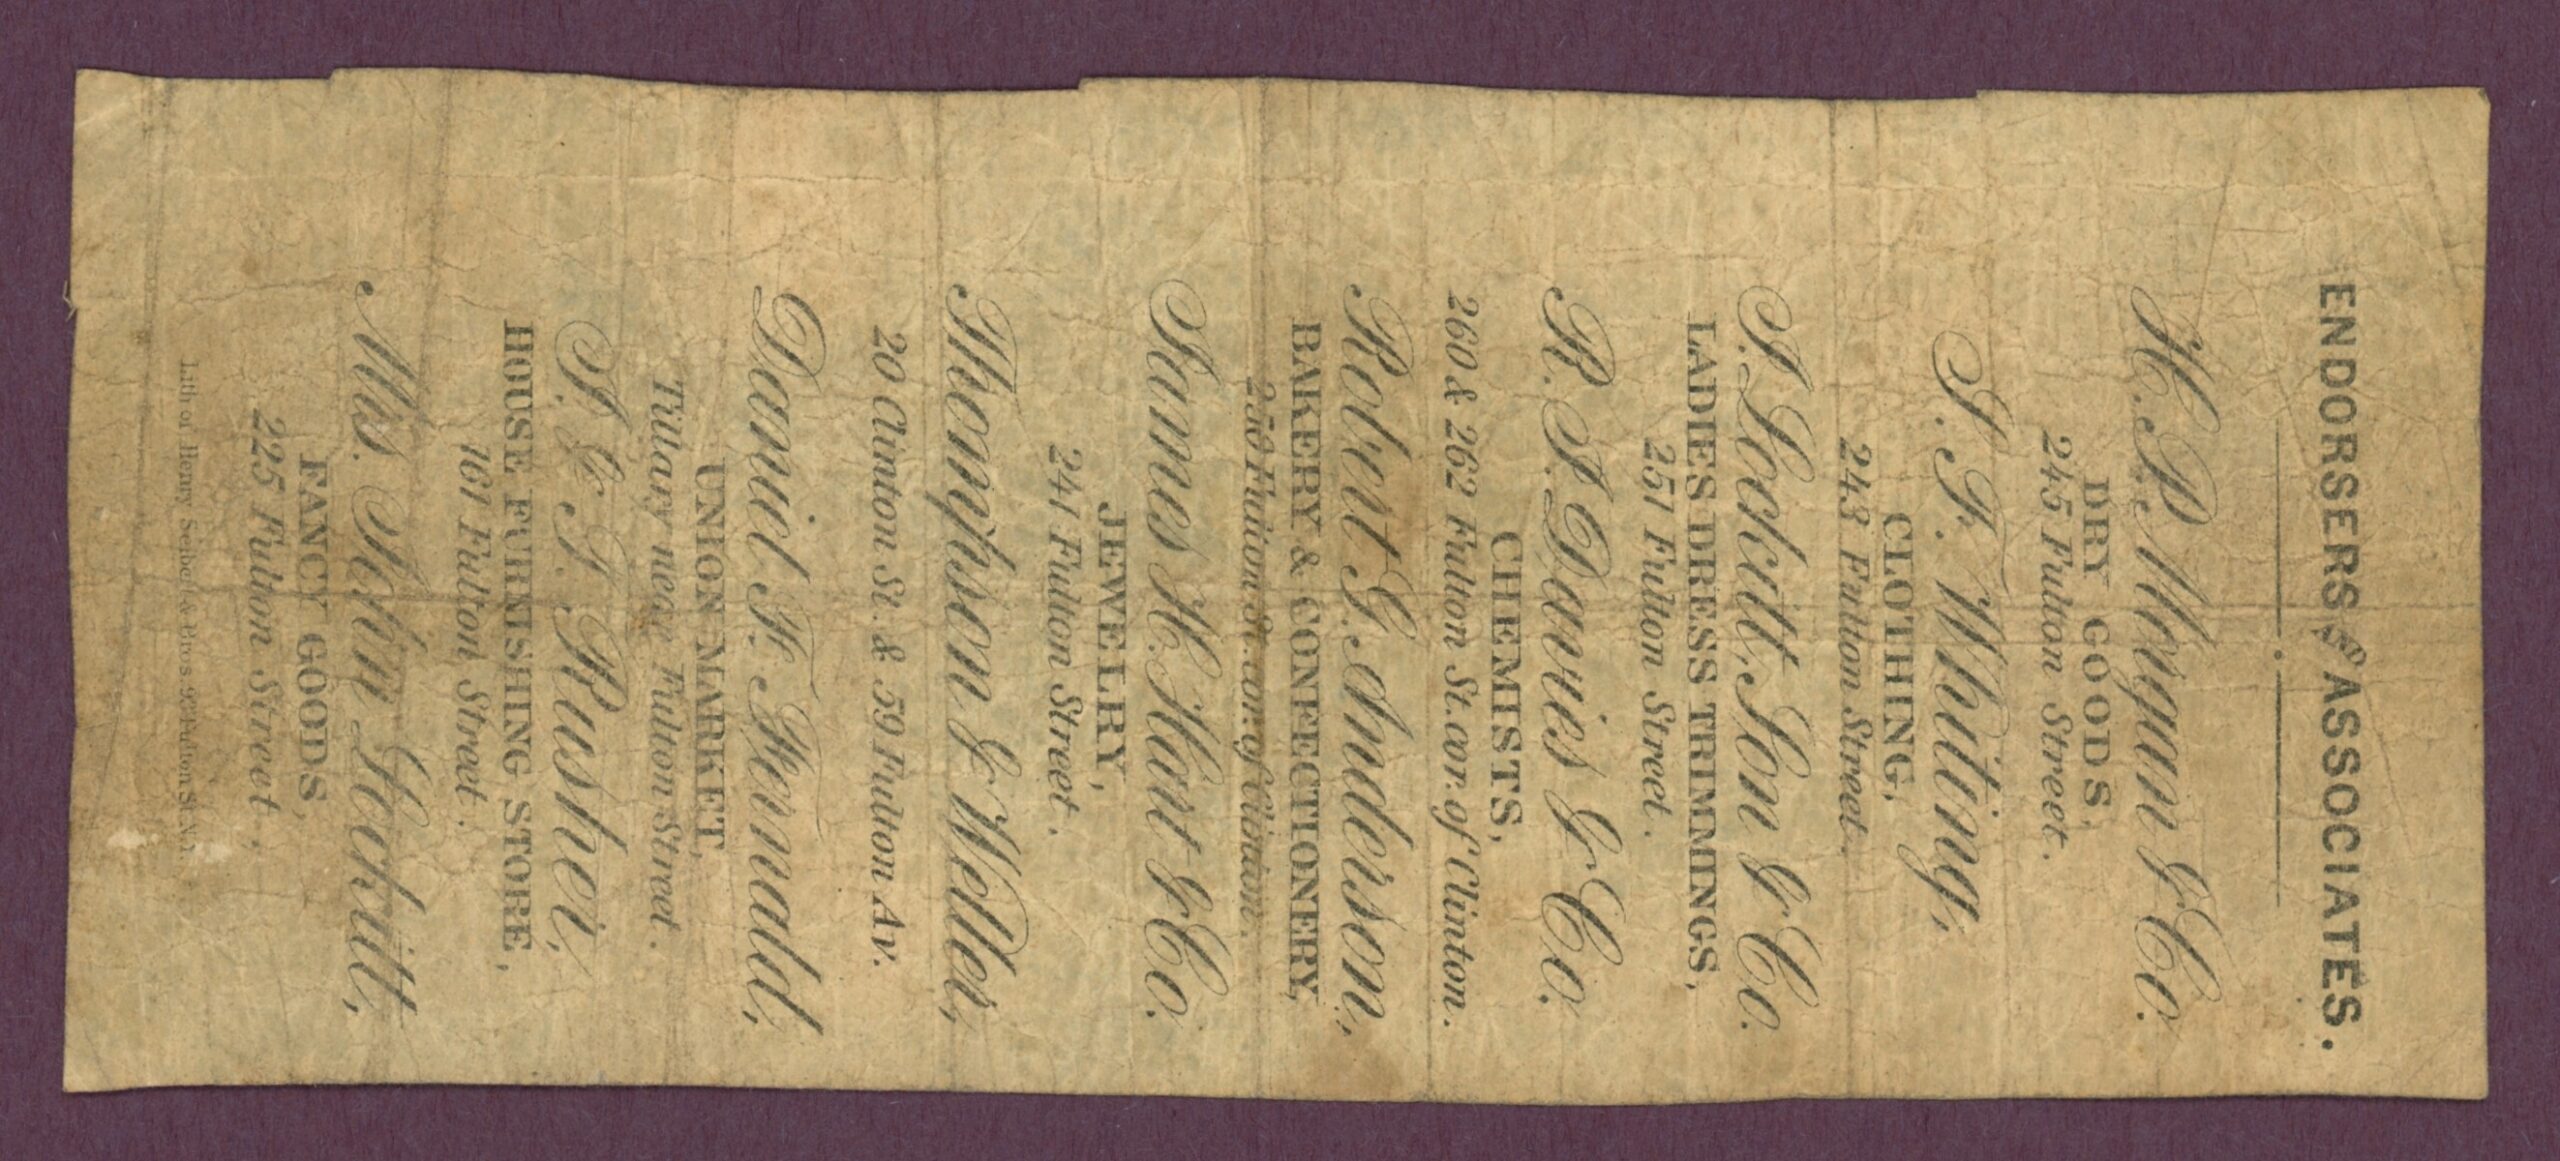 ENDORSERS AND ASSOCIATES.
H. P. Morgan & Co.
DRY GOODS,
245 Fulton Street.
S. T. Whiting,
CLOTHING,
243 Fulton Street.
S. Lockitt, Son & Co.
LADIES DRESS TRIMMINGS,
251 Fulton Street.
R. J. Davies & Co.
CHEMISTS,
260 & 262 Fulton St. cor. of Clinton.
Robert G. Anderson,
BAKERY & CONFECTIONERY,
258 Fulton St. cor. of Clinton.
James H. Hart & Co.
JEWELRY,
241 Fulton Street.
Thompson & Weller,
20 Clinton St. & 59 Fulton Av.
Daniel F. Fernald,
UNION MARKET,
Tillary near Fulton Street.
J. & T. Rusher,
HOUSE FURNISHING STORE,
161 Fulton Street.
Mrs. John Lockitt,
FANCY GOODS,
225 Fulton Street.
Lith of Henry Seibert & Bros 93 Fulton St. N.Y.